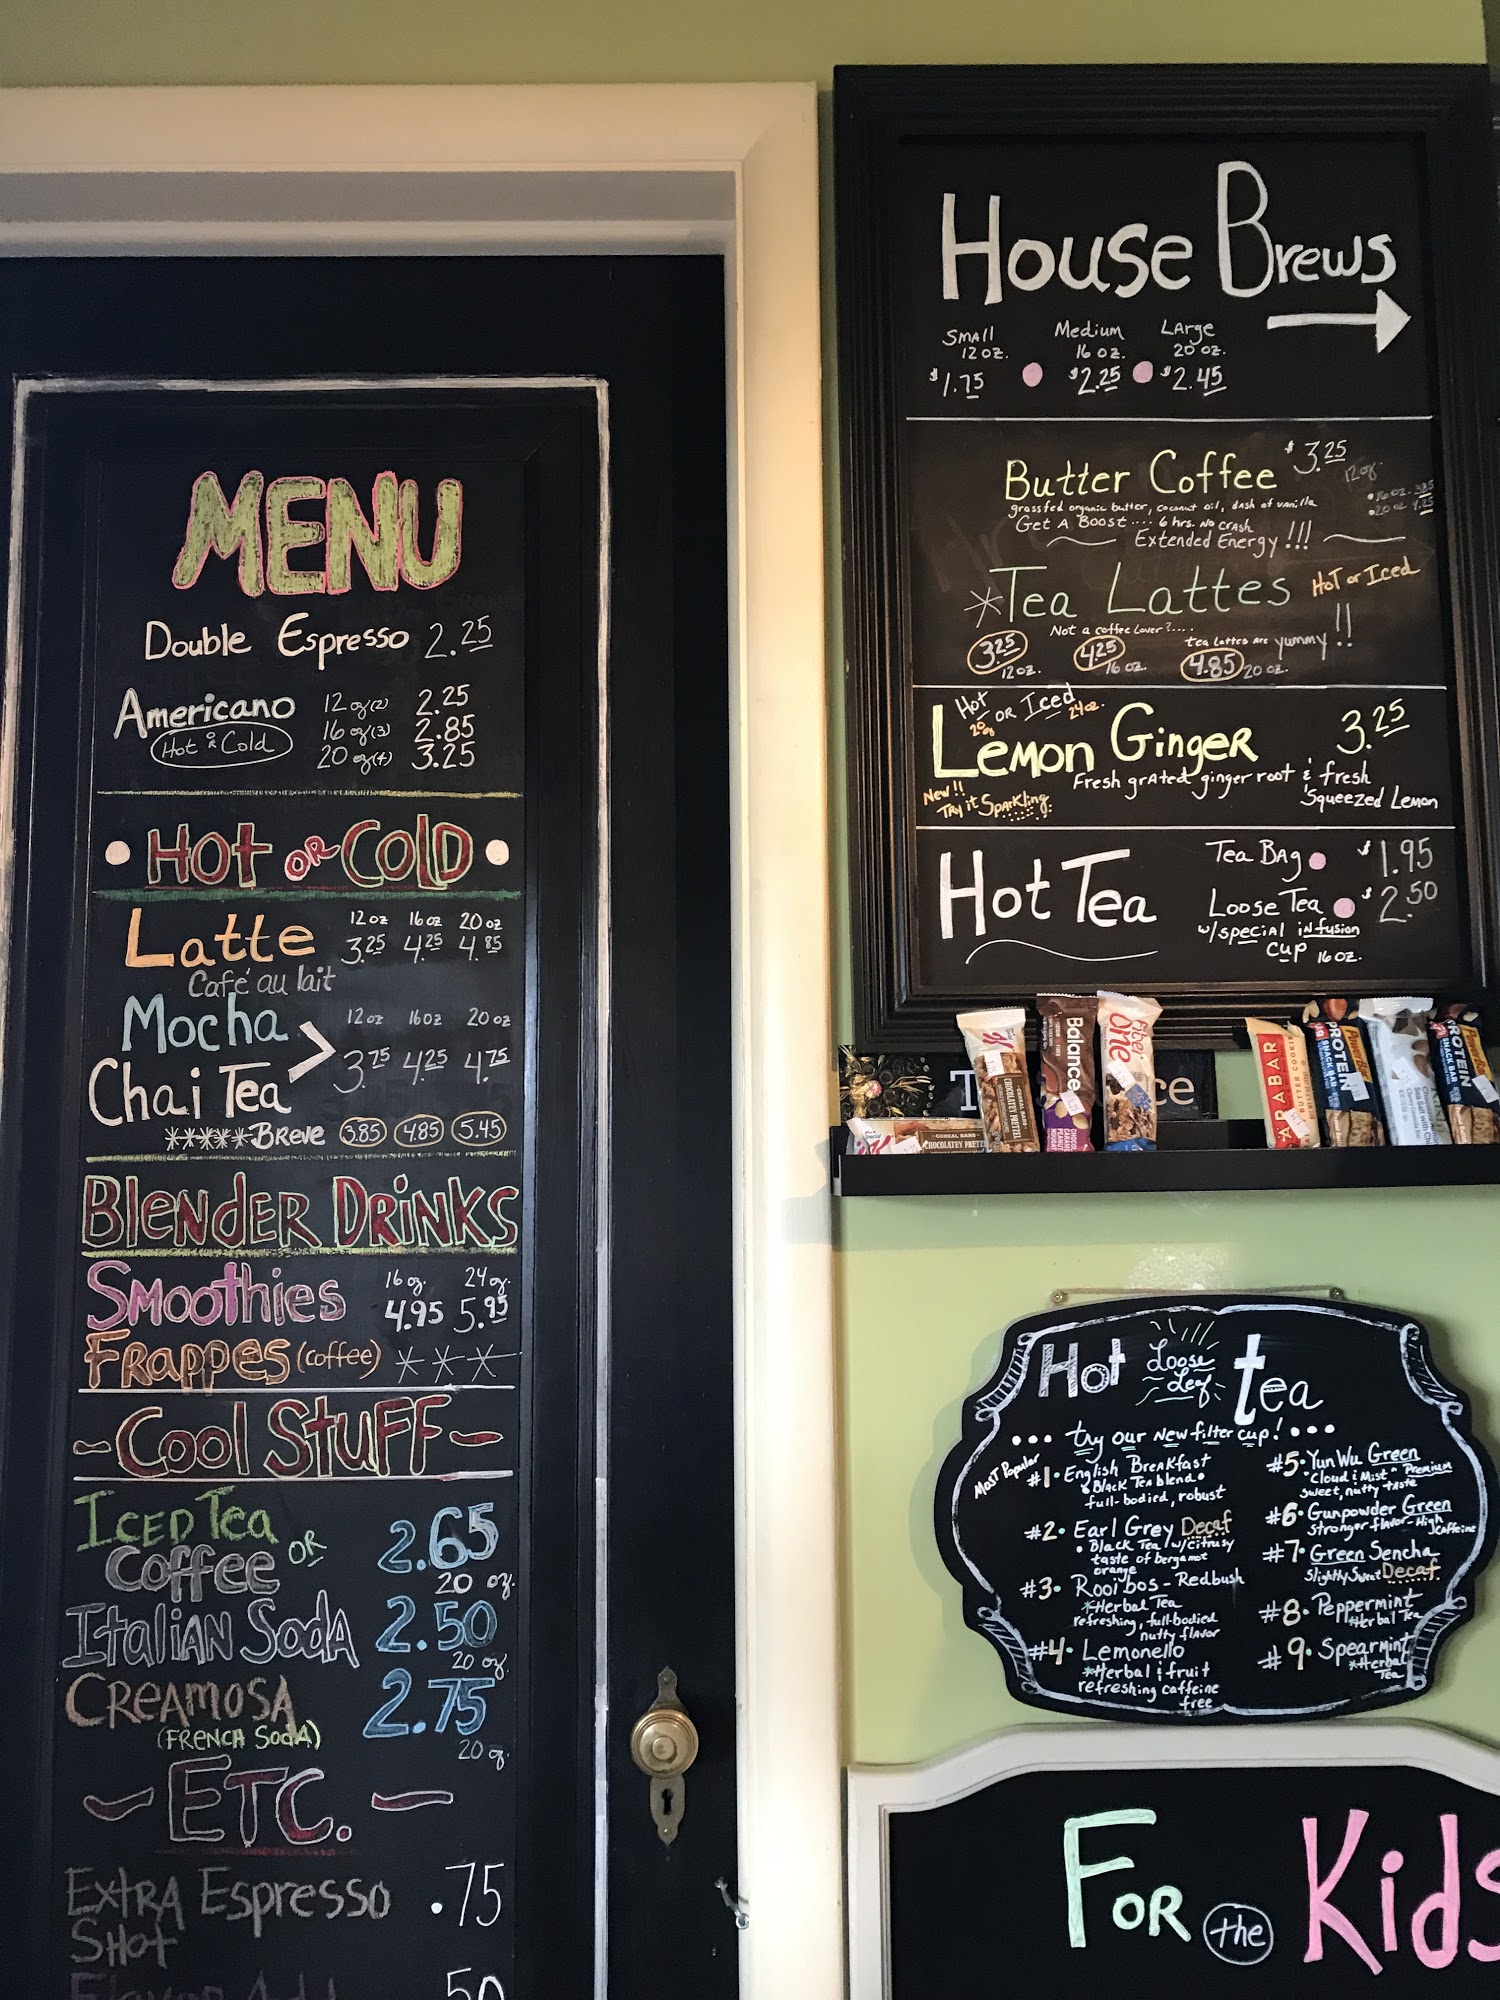 MENU
Double Espresso 2.25
Americano 12 oz(2) 2.25
Hot & Cold 16 oz(3) 2.85
20 oz(4) 3.25
Hot or Cold
12 oz 16 oz 20 oz
Latte 3.25 4.25 4.85
Café au lait
Mocha 12 oz 16 oz 20 oz
Chai Tea 3.75 4.25 4.75
*****Breve 3.85 4.85 5.45
Blender Drinks
16 oz. 24 oz.
Smoothies 4.95 5.95
Frappes (coffee) ***
~Cool Stuff~
Iced Tea or
Coffee 2.65
20 oz.
Italian Soda 2.50
20 oz.
Creamosa 2.75
(French Soda)
20 oz.
~ Etc. ~
Extra Espresso .75
Shot
50
House Brews
Small Medium Large
12 oz. 16 oz. 20 oz.
$1.75 $2.25 $2.45
Butter Coffee $3.25
12oz.
grassfed organic butter, coconut oil, dash of vanilla
Get A Boost.... 6 hrs. No crash
Extended Energy!!!
*Tea Lattes Hot or Iced
Not a coffee lover?....
tea lattes are yummy!!
3.25 4.25 4.85
12oz. 16 oz. 20 oz.
Hot or Iced
20oz 24oz.
Lemon Ginger 3.25
Fresh grated ginger root & fresh
Squeezed Lemon
New!!
Try it Sparkling.
Hot Tea
Tea Bag $1.95
Loose Tea $2.50
w/special infusion
cup 16oz.
Balance
Fiber
One
CHOCOLATEY PRETZEL
CEREAL BARS
CHOCOLATEY PRETZ
ARABAR
PowerBar
PROTEIN
SNACK BAR
PROTEIN
SNACK BAR
Hot Loose Leaf tea
... try our new filter cup! ...
Most Popular
#1. English Breakfast
Black Tea blend
full-bodied, robust
#2. Earl Grey Decaf
Black Tea w/citrusy
taste of bergamot
orange
#3. Rooibos-Redbush
*Herbal Tea
refreshing, full-bodied
nutty flavor
#4. Lemonello
*Herbal & fruit
refreshing caffeine
free
#5. Yun Wu Green
"Cloud & Mist" Premium
sweet, nutty taste
#6. Gunpowder Green
stronger flavor-High
caffeine
#7. Green Sencha
slightly sweet Decaf
#8. Peppermint
*Herbal Tea
#9. Spearmint
*Herbal
Tea
For the Kids